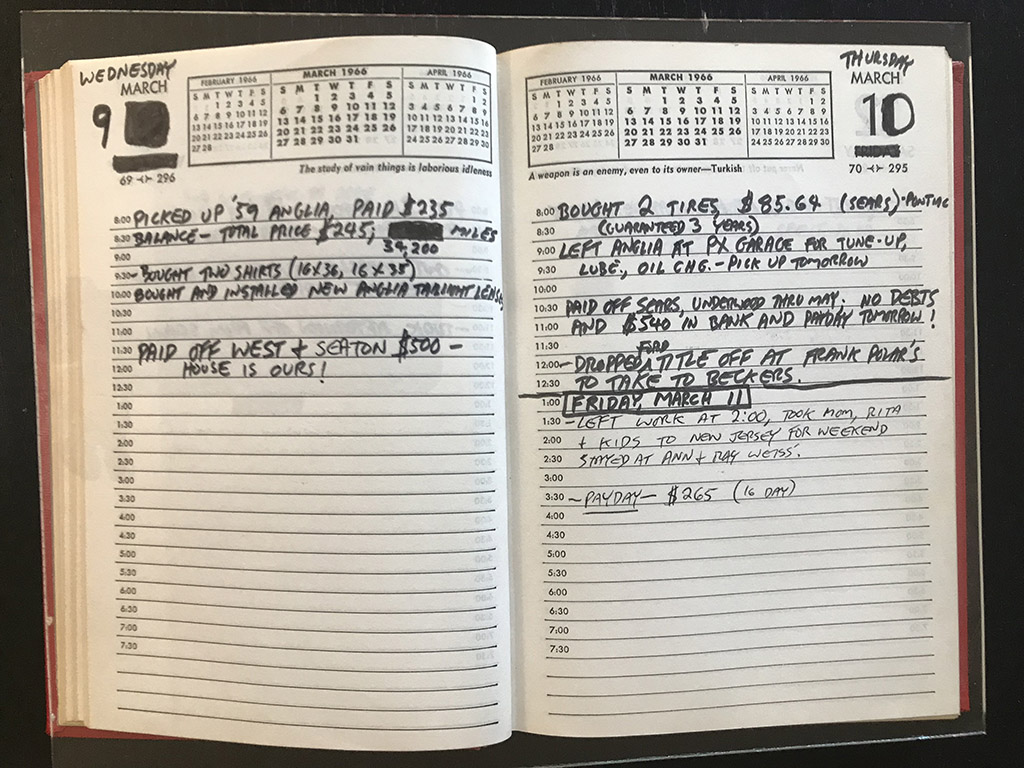 WEDNESDAY
MARCH
9
69 ⊰⊱ 296
FEBRUARY 1966
S M T W T F S
1 2 3 4 5
6 7 8 9 10 11 12
13 14 15 16 17 18 19
20 21 22 23 24 25 26
27 28
MARCH 1966
S M T W T F S
1 2 3 4 5
6 7 8 9 10 11 12
13 14 15 16 17 18 19
20 21 22 23 24 25 26
27 28 29 30 31
APRIL 1966
S M T W T F S
1 2
3 4 5 6 7 8 9
10 11 12 13 14 15 16
17 18 19 20 21 22 23
24 25 26 27 28 29 30
The study of vain things is laborious idleness
8:00 PICKED UP '59 ANGLIA, PAID $235
8:30 BALANCE - TOTAL PRICE $245; MILES
9:00 34,200
9:30 - BOUGHT TWO SHIRTS (16X36, 16X35)
10:00 BOUGHT AND INSTALLED NEW ANGLIA TAILIGHT LENSE
10:30
11:00
11:30 PAID OFF WEST & SEATON $500 -
12:00 HOUSE IS OURS!
12:30
1:00
1:30
2:00
2:30
3:00
3:30
4:00
4:30
5:00
5:30
6:00
6:30
7:00
7:30
FEBRUARY 1966
S M T W T F S
1 2 3 4 5
6 7 8 9 10 11 12
13 14 15 16 17 18 19
20 21 22 23 24 25 26
27 28
MARCH 1966
S M T W T F S
1 2 3 4 5
6 7 8 9 10 11 12
13 14 15 16 17 18 19
20 21 22 23 24 25 26
27 28 29 30 31
APRIL 1966
S M T W T F S
1 2
3 4 5 6 7 8 9
10 11 12 13 14 15 16
17 18 19 20 21 22 23
24 25 26 27 28 29 30
THURSDAY
MARCH
10
FRIDAY
70 ⊰⊱ 295
A weapon is an enemy, even to its owner—Turkish
8:00 BOUGHT 2 TIRES, $85.64 (SEARS)-PONTIAC
8:30 (GUARANTEED 3 YEARS)
9:00 LEFT ANGLIA AT PX GARAGE FOR TUNE-UP,
9:30 LUBE, OIL CHG. - PICK UP TOMORROW
10:00
10:30 PAID OFF SEARS, UNDERWOOD THRU MAY; NO DEBTS
11:00 AND $540 IN BANK AND PAYDAY TOMORROW!
11:30 FORD
12:00 - DROPPED TITLE OFF AT FRANK POLAR'S
12:30 TO TAKE TO BECKERS.
1:00 FRIDAY, MARCH 11
1:30 - LEFT WORK AT 2:00, TOOK MOM, RITA
2:00 & KIDS TO NEW JERSEY FOR WEEKEND
2:30 STAYED AT ANN & RAY WEISS.
3:00
3:30 - PAYDAY - $265 (16 DAY)
4:00
4:30
5:00
5:30
6:00
6:30
7:00
7:30